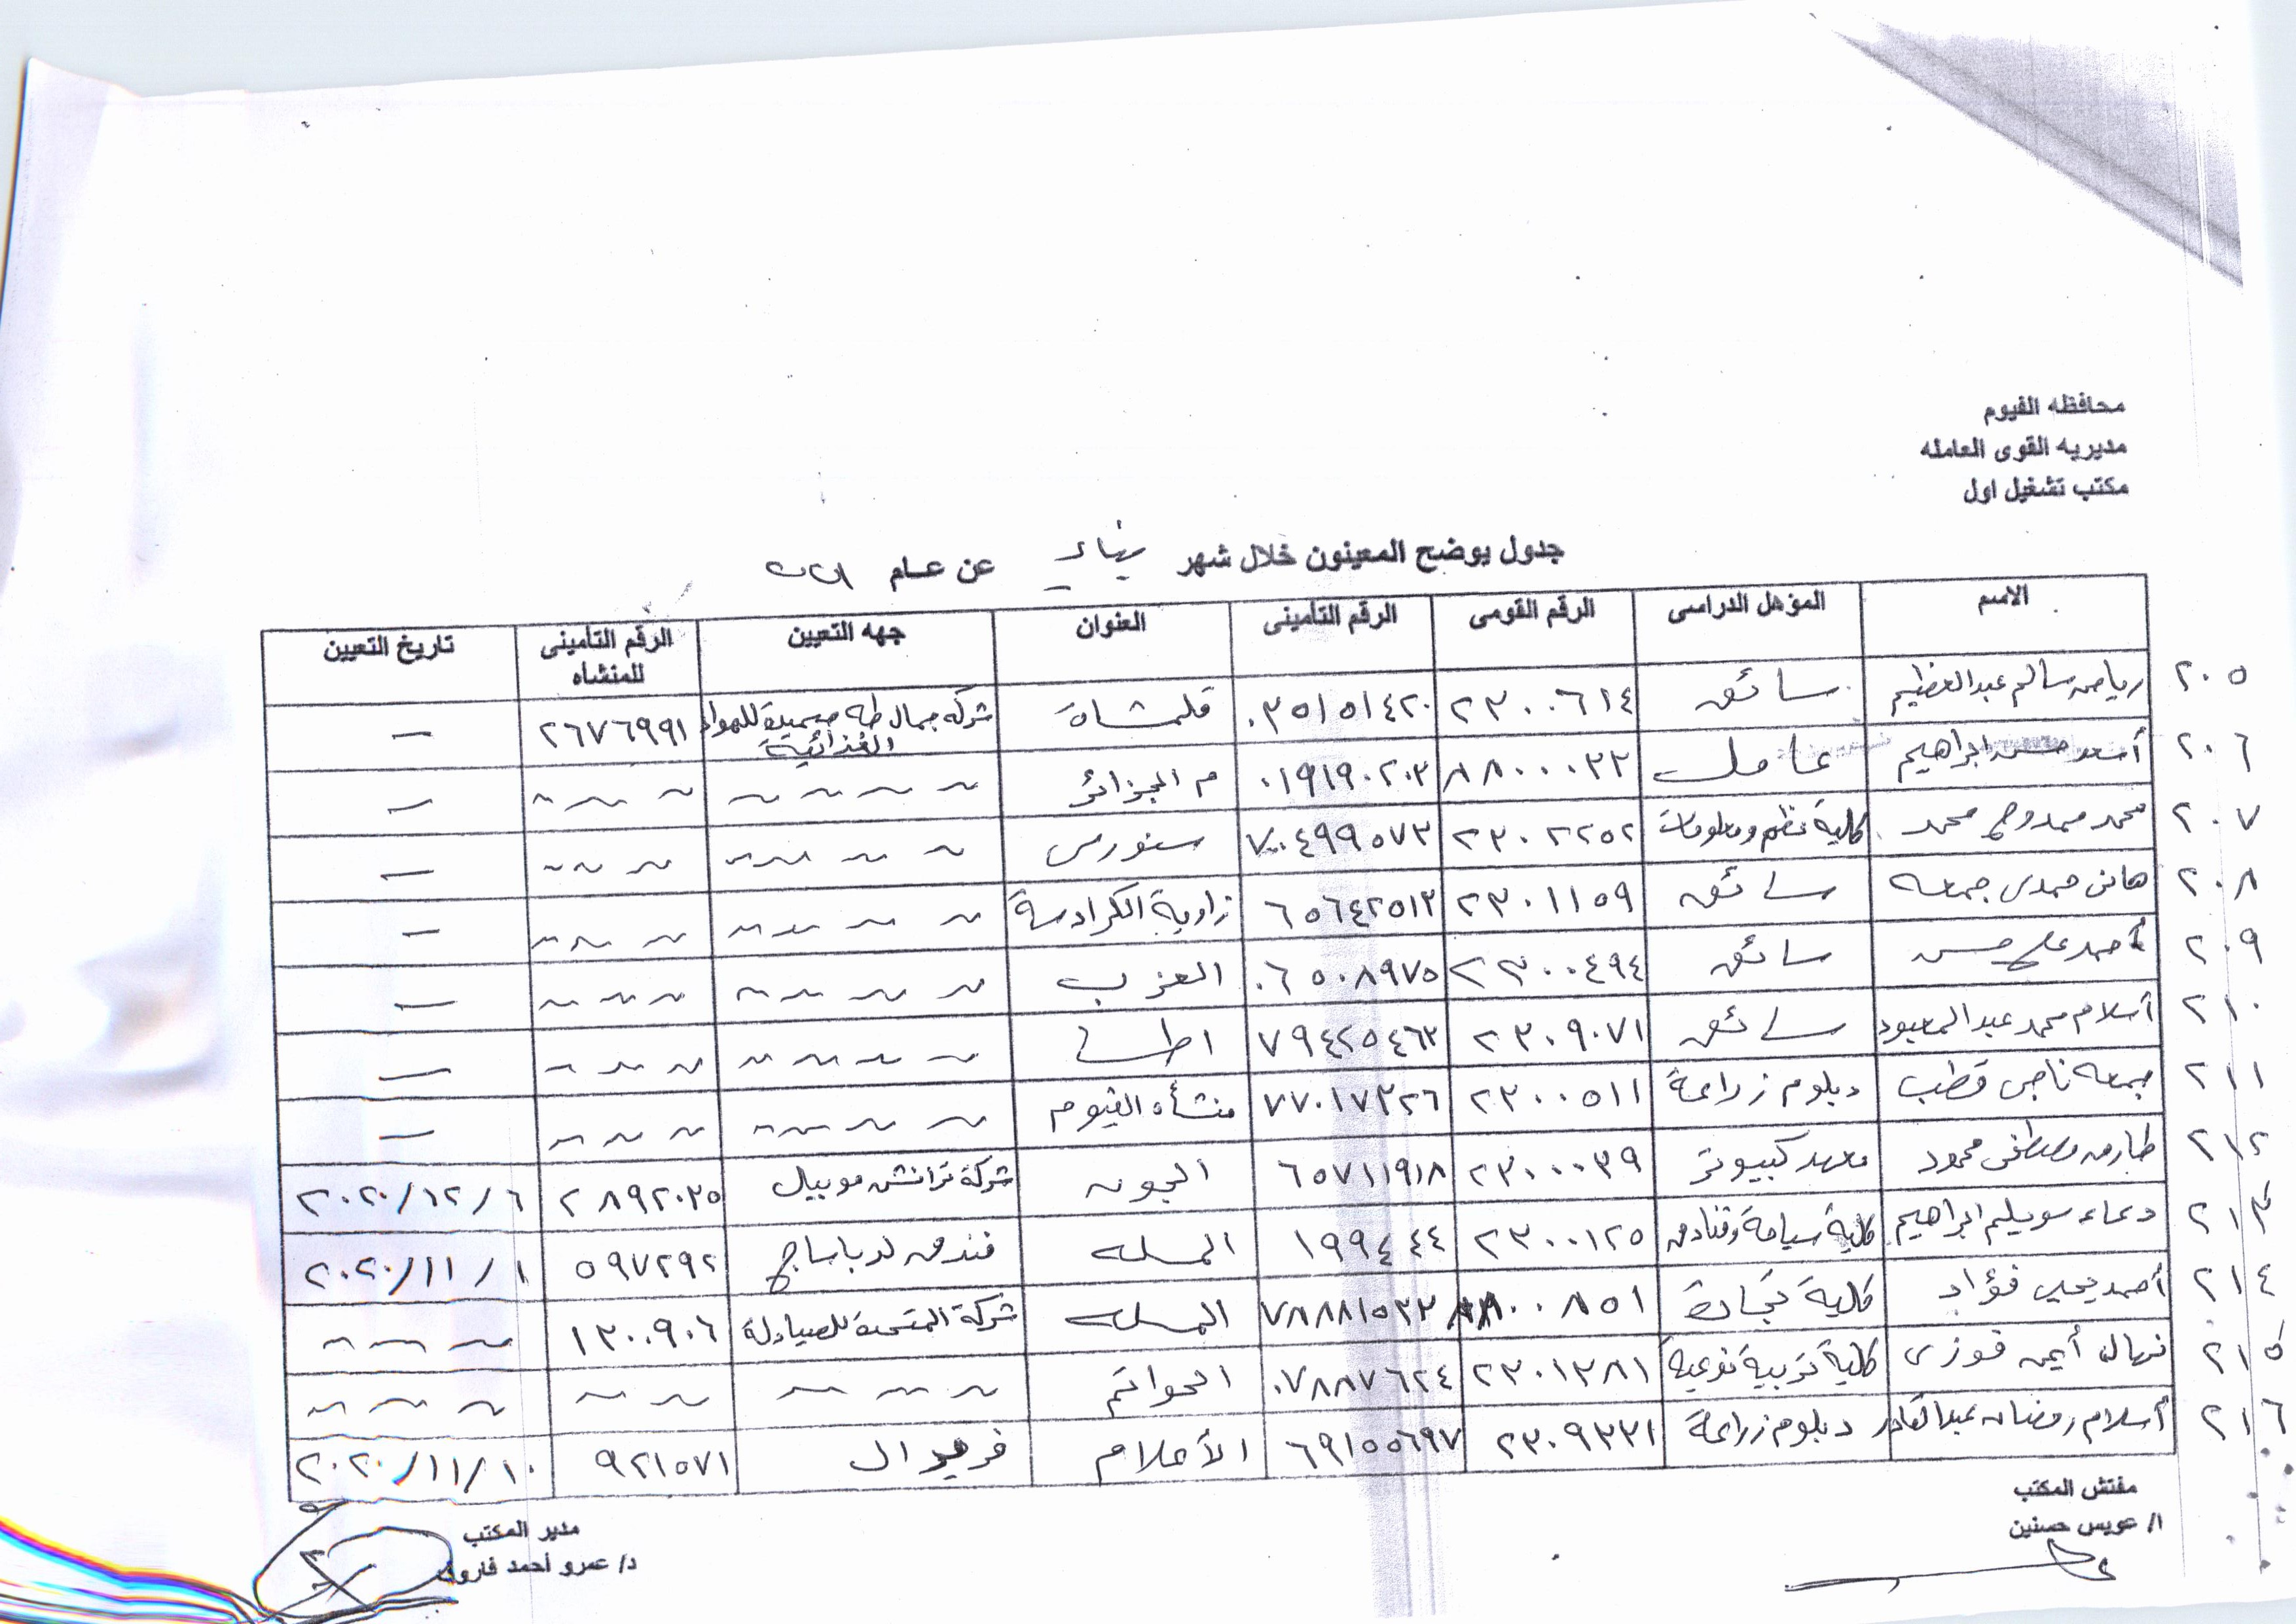 محافظه الفيوم
مديريه القوى العامله
مكتب تشغيل اول
جدول يوضح المعينون خلال شهر يناير عن عام ٢٠٢١
الاسم المؤهل الدراسى الرقم القومى الرقم التأمينى العنوان جهه التعيين الرقم التأمينى للمنشاه تاريخ التعيين
٢٠٥ رياض سالم عبد العظيم سائق ٢٣٠٠٦١٤ ٠٣٥١٥١٤٢٠ قلمشاة شركه جمال طه حميدة للمواد الغذائية ٢٦٧٦٩٩١ —
٢٠٦ أسعد حسن ابراهيم عامل ٨٨٠٠٠٣٢ ٠١٩١٩٠٢٠٣ م الجزائر ~ ~ ~ ~ ~ ~ ~ —
٢٠٧ محمد ممدوح محمد كلية نظم ومعلومات ٢٣٠٢٢٥٢ ٧٠٤٩٩٥٧٣ سنورس ~ ~ ~ ~ ~ ~ ~ —
٢٠٨ هانى حمدى جمعه سائق ٢٣٠١١٥٩ ٦٥٦٤٢٥١٣ زاوية الكرادسة ~ ~ ~ ~ ~ ~ ~ —
٢٠٩ أحمد على حسن سائق ٢٣٠٠٤٩٤ ٠٦٥٠٨٩٧٥ العزب ~ ~ ~ ~ ~ ~ ~ —
٢١٠ أسلام محمد عبد المعبود سائق ٢٣٠٩٠٧١ ٧٩٤٢٥٤٦٣ اطسا ~ ~ ~ ~ ~ ~ ~ —
٢١١ جمعه ناجى قطب دبلوم زراعة ٢٣٠٠٥١١ ٧٧٠١٧٣٢٦ منشأه الفيوم ~ ~ ~ ~ ~ ~ ~ —
٢١٢ طارق مصطفى محمود معهد كبيوتر ٢٣٠٠٠٣٩ ٦٥٧١١٩١٨ الجون شركة ترانش موبيل ٢٨٩٢٠٣٥ ٢٠٢٠/١٢/٦
٢١٣ دعاء سويلم ابراهيم كلية سياحة وفنادق ٢٣٠٠١٢٥ ١٩٩٤٤٤ المسله فندق لدباساج ٥٩٧٢٩٢ ٢٠٢٠/١١/١
٢١٤ أحمد يحيى فؤاد كلية تجارة ٨٨٠٠٨٥١ ٧٨٨٨١٥٣٢ المسله شركة المتحدة للصيادلة ١٣٠٠٩٠٦ ~ ~ ~
٢١٥ نهال أيمن فوزى كلية تربية نوعية ٢٣٠١٣٨١ ٠٧٨٨٧٦٢٤ الحواتم ~ ~ ~ ~ ~ ~ ~ ~
٢١٦ أسلام رمضان عبد القادر دبلوم زراعة ٢٣٠٩٣٣١ ٦٩١٥٥٦٩٧ الأعلام فريال ٩٢١٥٧١ ٢٠٢٠/١١/١٠
مفتش المكتب
ا/ عويس حسنين
مدير المكتب
د/ عمرو أحمد فاروق